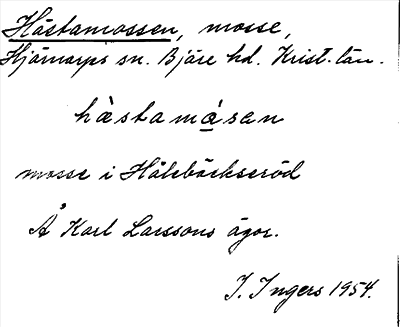 Hästamossen, mosse,
Hjärnarps sn. Bjäre hd. Krist. län.
hàstamásen
mosse i Hålebäckseröd
Å Karl Larssons ägor.
I. Ingers 1954.